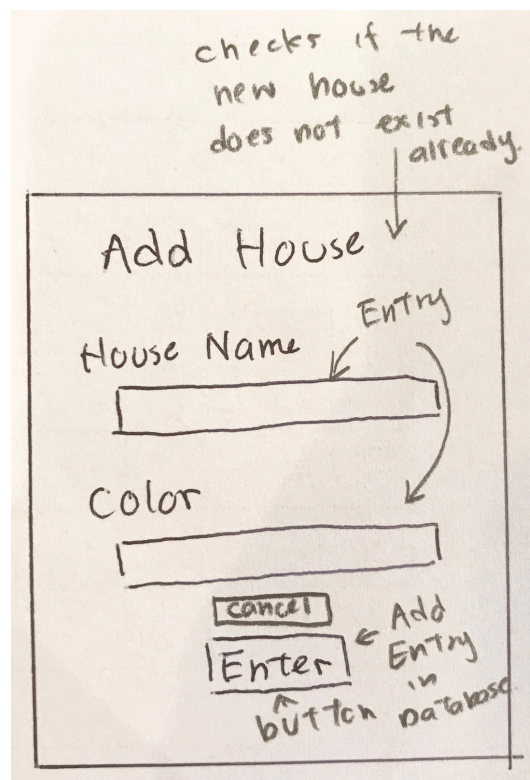 checks if the
new house
does not exist
already.
Add House
Entry
House Name
Color
cancel
Enter
Add
Entry
in
Database
button